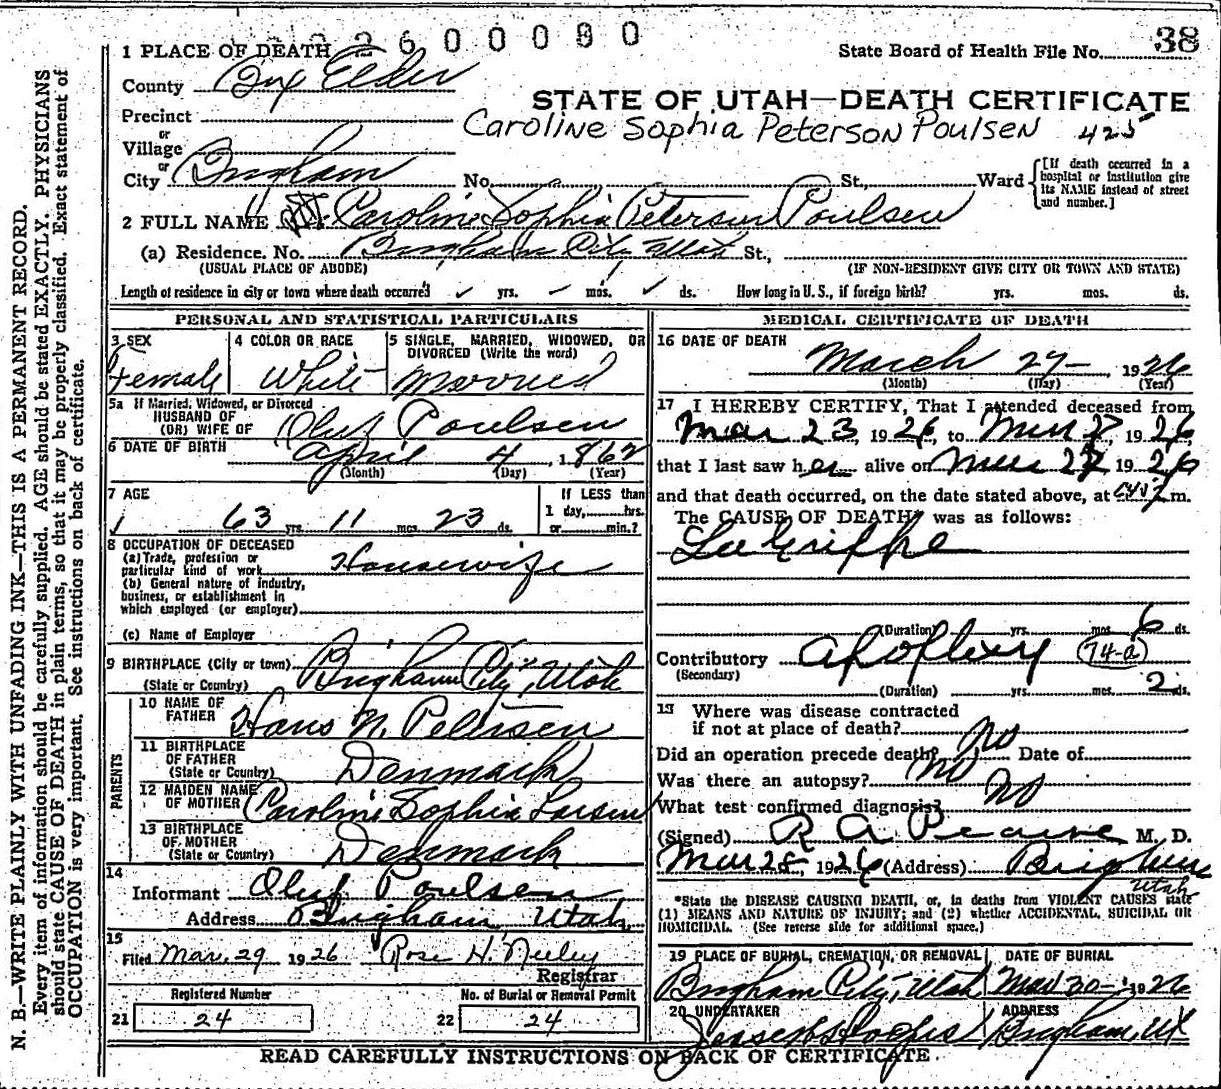 2600080
38
1 PLACE OF DEATH
State Board of Health File No.
County Box Elder
STATE OF UTAH—DEATH CERTIFICATE
Precinct
Caroline Sophia Peterson Poulsen 425
or
Village
or
City Brigham No. St., Ward
[If death occurred in a hospital or institution give its NAME instead of street and number.]
2 FULL NAME Caroline Sophia Peterson Poulsen
(a) Residence. No. Brigham City Utah St.,
(USUAL PLACE OF ABODE) (IF NON-RESIDENT GIVE CITY OR TOWN AND STATE)
Length of residence in city or town where death occurred yrs. mos. ds. How long in U. S., if foreign birth? yrs. mos. ds.
PERSONAL AND STATISTICAL PARTICULARS
3 SEX
Female
4 COLOR OR RACE
White
5 SINGLE, MARRIED, WIDOWED, OR DIVORCED (Write the word)
Married
5a If Married, Widowed, or Divorced
HUSBAND OF
(OR) WIFE OF Oluf Poulsen
6 DATE OF BIRTH April 4, 1862
(Month) (Day) (Year)
7 AGE
63 yrs. 11 mos. 23 ds.
If LESS than
1 day, hrs.
or min.?
8 OCCUPATION OF DECEASED
(a) Trade, profession or
particular kind of work Housewife
(b) General nature of industry,
business, or establishment in
which employed (or employer)
(c) Name of Employer
9 BIRTHPLACE (City or town) Brigham City, Utah
(State or Country)
PARENTS
10 NAME OF
FATHER Hans N. Petersen
11 BIRTHPLACE
OF FATHER Denmark
(State or Country)
12 MAIDEN NAME
OF MOTHER Caroline Sophia Larsen
13 BIRTHPLACE
OF MOTHER Denmark
(State or Country)
14
Informant Oluf Poulsen
Address Brigham Utah
15
Filed Mar. 29 1926 Rose H. Neeley
Registrar
Registered Number
21 24
No. of Burial or Removal Permit
22 24
MEDICAL CERTIFICATE OF DEATH
16 DATE OF DEATH
March 27, 1926
(Month) (Day) (Year)
17 I HEREBY CERTIFY, That I attended deceased from
Mar 23, 1926, to Mar 27, 1926,
that I last saw her alive on Mar 27 1926
and that death occurred, on the date stated above, at m.
The CAUSE OF DEATH* was as follows:
La Grippe
(Duration) yrs. mos. 6 ds.
Contributory Apoplexy 74-a
(Secondary)
(Duration) yrs. mos. 2 ds.
18 Where was disease contracted
if not at place of death?
Did an operation precede death? No Date of
Was there an autopsy? No
What test confirmed diagnosis? No
(Signed) R A Pearse M. D.
Mar 28, 1926 (Address) Brigham
Utah
*State the DISEASE CAUSING DEATH, or, in deaths from VIOLENT CAUSES state
(1) MEANS AND NATURE OF INJURY; and (2) whether ACCIDENTAL, SUICIDAL OR
HOMICIDAL. (See reverse side for additional space.)
19 PLACE OF BURIAL, CREMATION, OR REMOVAL
Brigham City, Utah
DATE OF BURIAL
Mar 30 1926
20 UNDERTAKER
ADDRESS
Brigham, Ut
READ CAREFULLY INSTRUCTIONS ON BACK OF CERTIFICATE
N. B.—WRITE PLAINLY WITH UNFADING INK—THIS IS A PERMANENT RECORD.
Every item of information should be carefully supplied. AGE should be stated EXACTLY. PHYSICIANS
should state CAUSE OF DEATH in plain terms, so that it may be properly classified. Exact statement of
OCCUPATION is very important. See instructions on back of certificate.